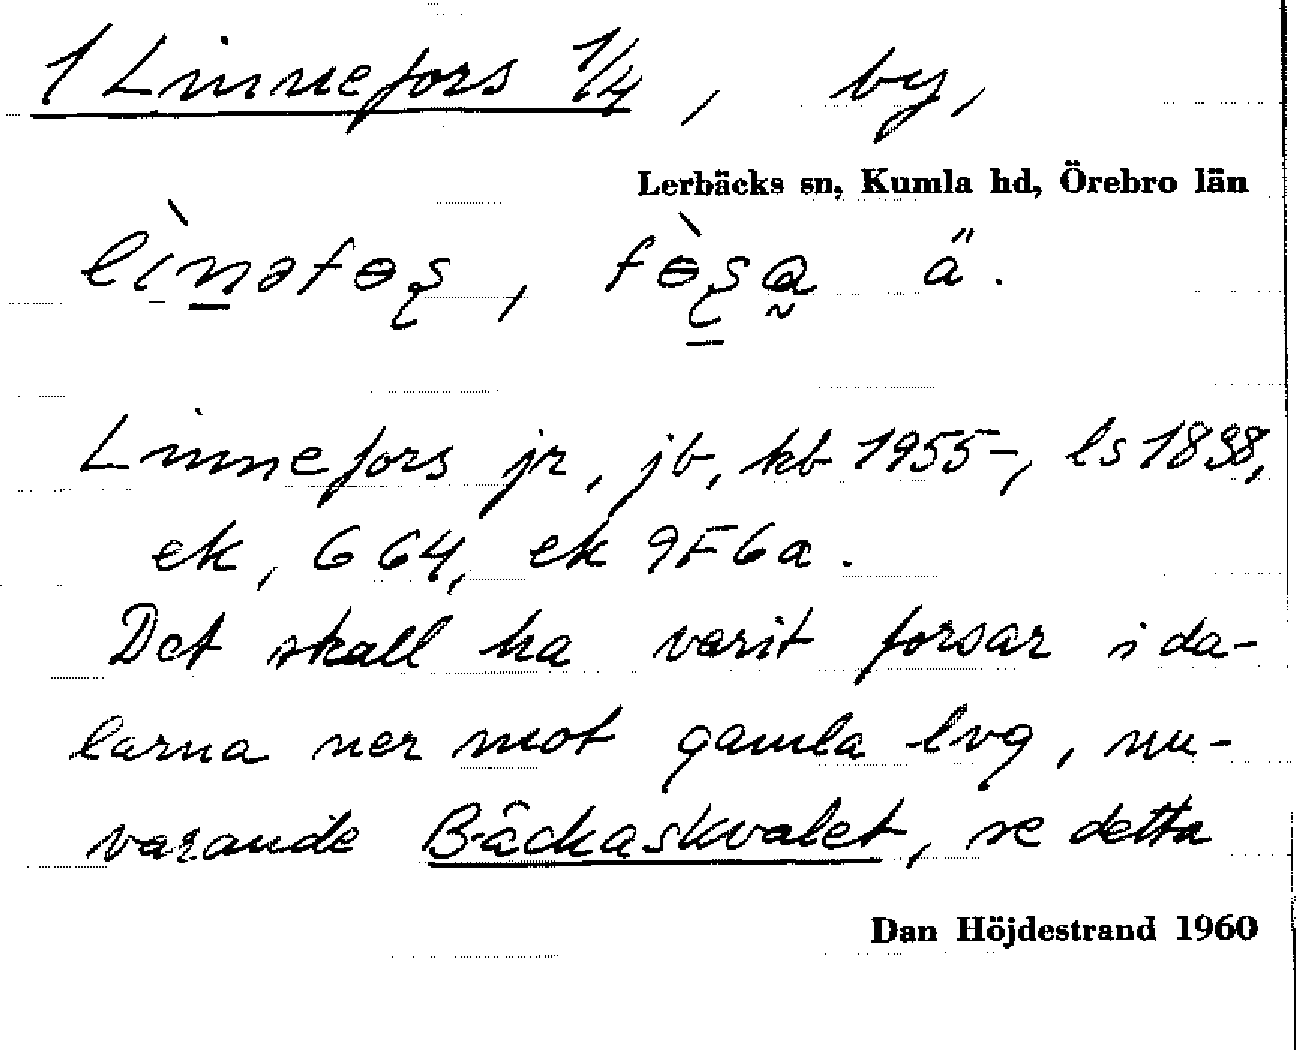 1 Linnefors 1/4, by,
Lerbäcks sn, Kumla hd, Örebro län
ä.
Linnefors jr, jb, kb 1955-, ls 1898,
ek, G 64, ek 9F6a.
Det skall ha varit forsar i da-
larna ner mot gamla lvg, nu-
varande Bäckaskvalet, se detta
Dan Höjdestrand 1960